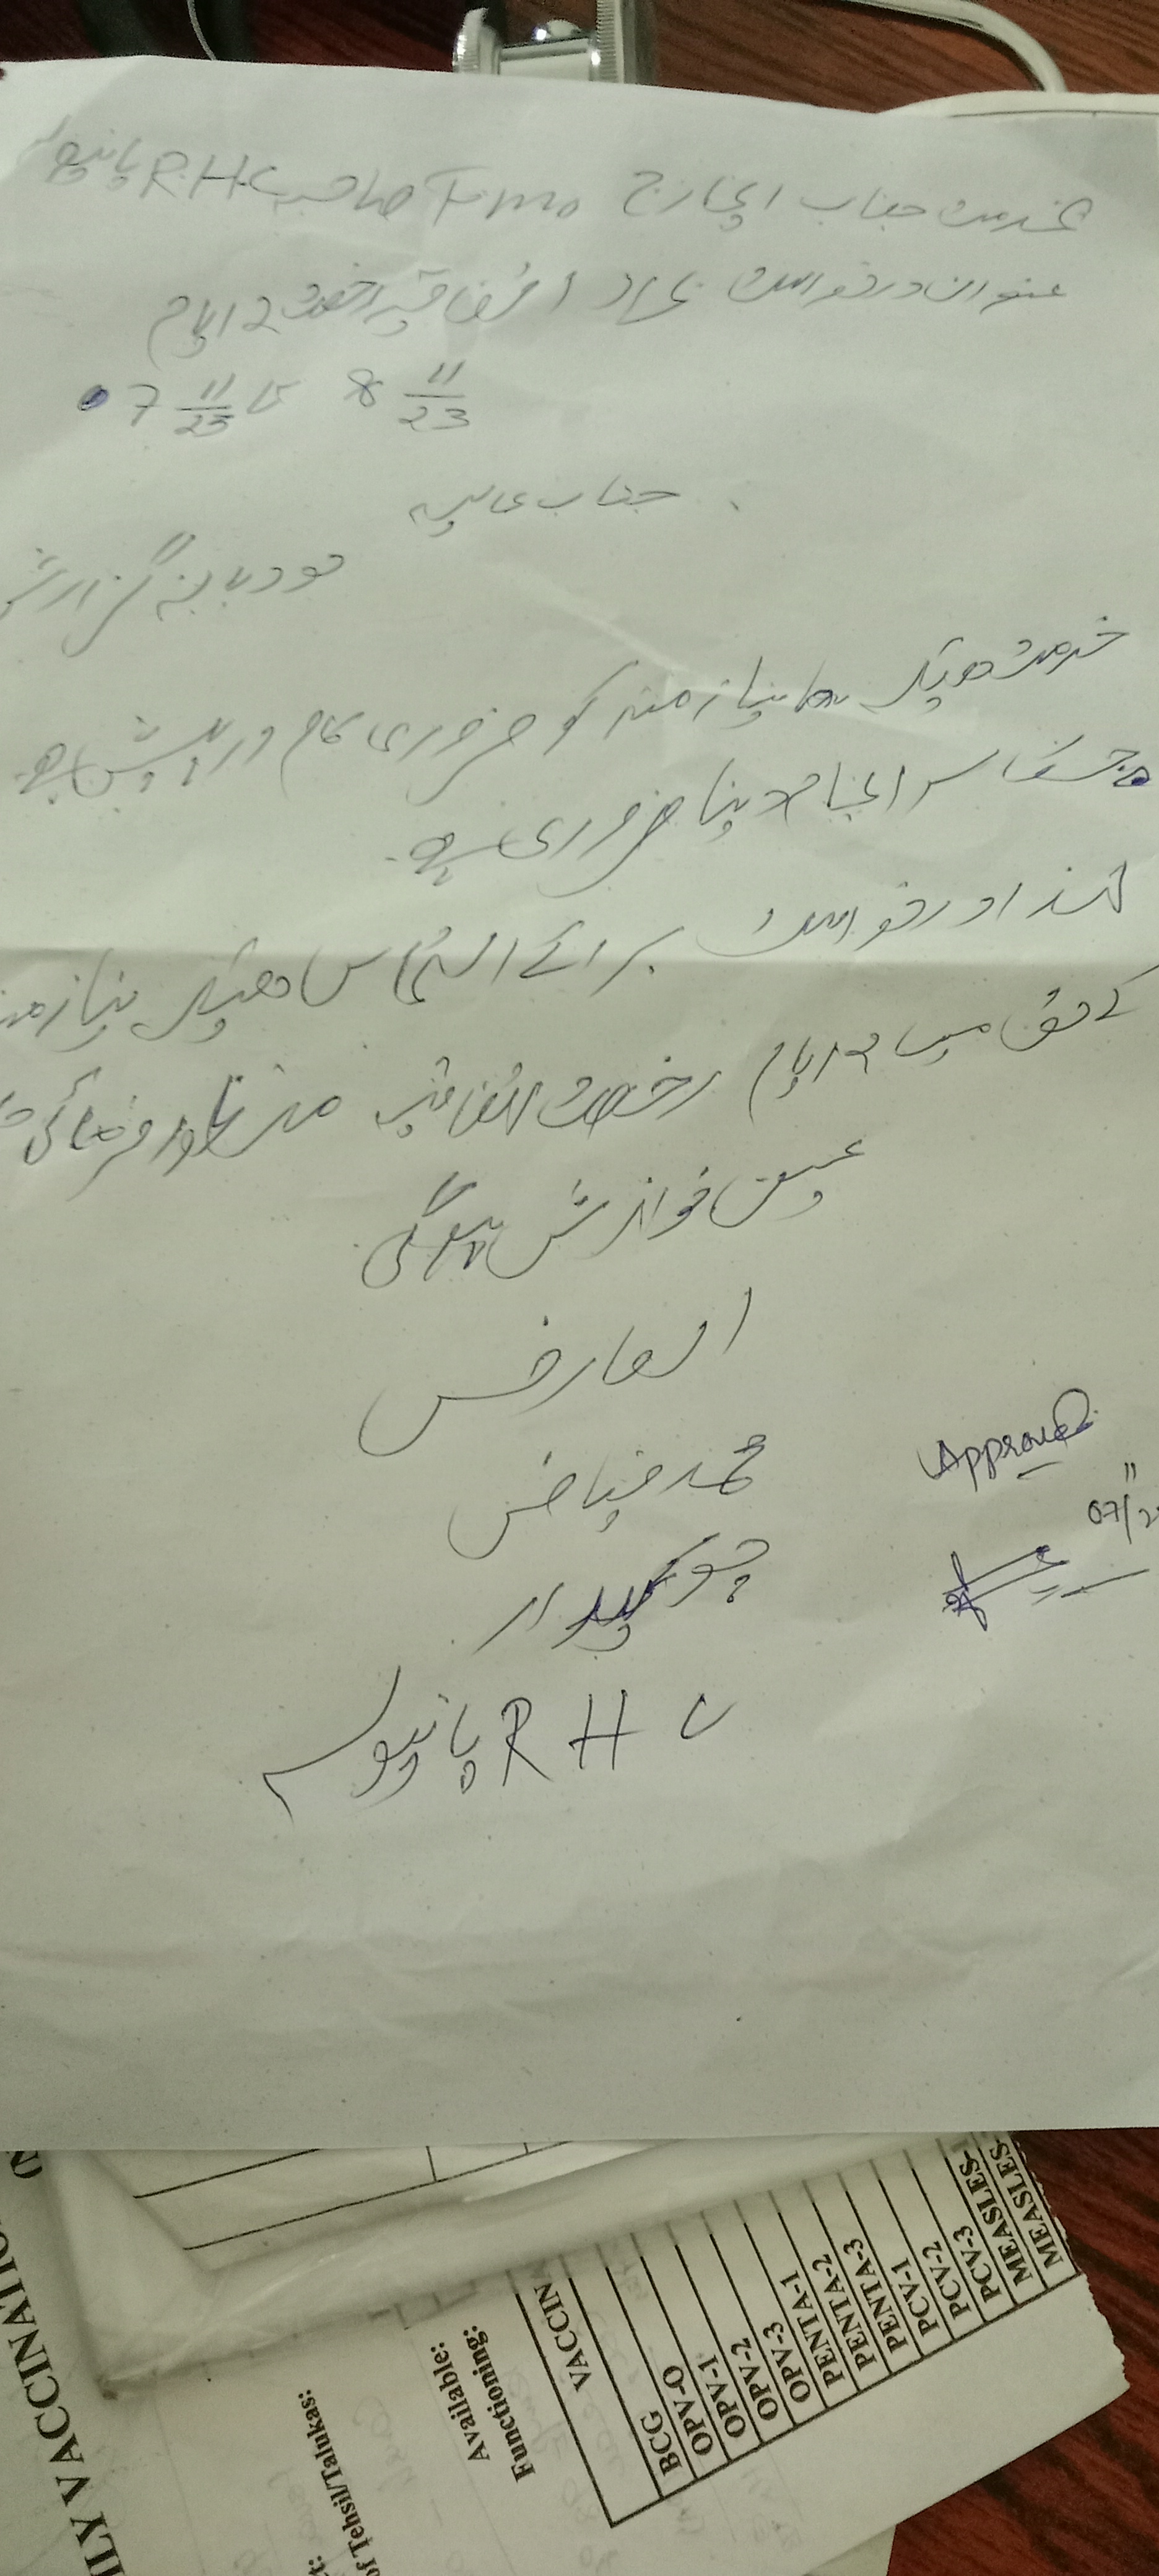 بخدمت جناب انچارج FMO صاحب RHC پانیولہ
عنوان درخواست بمراد اتفاقیہ رخصت 2 ایام
7 11/23 تا 8 11/23
جناب عالیہ
مودبانہ گزارش
خدمت ھیکہ نیازمند کو ضروری کام درپیش ہے
جسکا سر انجام دینا ضروری ہے۔
لہذا درخواست برائے التماس ھیکہ نیازمند
کے حق میں 2 ایام رخصت اتفاقیہ منظور فرمائی
عین نوازش ہوگی
العارض
محمد فیاض
چوکیدار
RHC پانیولہ
Approved
07/11/2
ILY VACCINATIO
of Tehsil/Talukas:
Available:
Functioning:
VACCIN
BCG
OPV-O
OPV-1
OPV-2
OPV-3
PENTA-1
PENTA-2
PENTA-3
PCV-1
PCV-2
PCV-3
MEASLES-
MEASLES